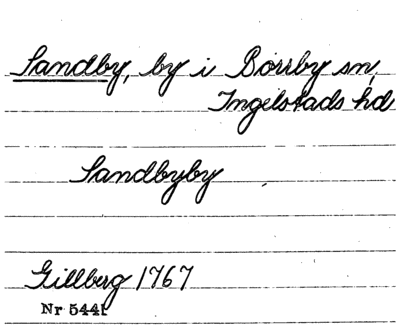 Sandby, by i Borrby sn,
Ingelstads hd
Sandbyby
Gillberg 1767
Nr 5441